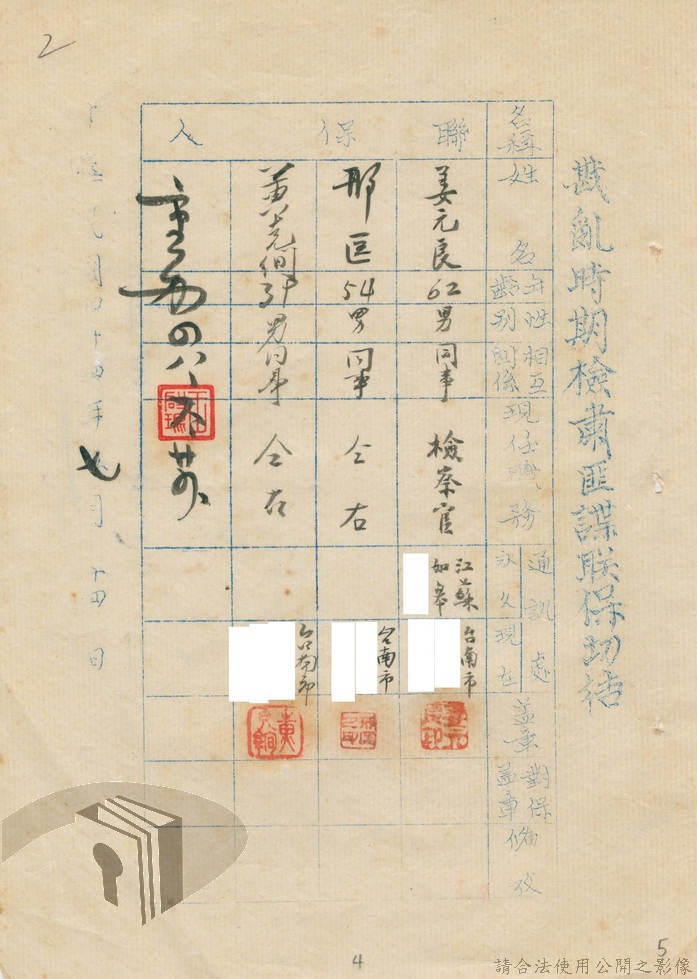 2
戡亂時期檢肅匪諜联保切结
名稱
姓名
年齡
性別
相互関係
現任職務
通訊處
永久
現在
盖章
對保盖章
俻攷
聯保人
姜元良 62 男 同事 檢察官 江蘇如皋 台南市
邢匡 54 男 同事 仝右 台南市
黄克 男 同事 仝右 台南市
中華民国四十四年七月十四日
4
5
請合法使用公開之影像